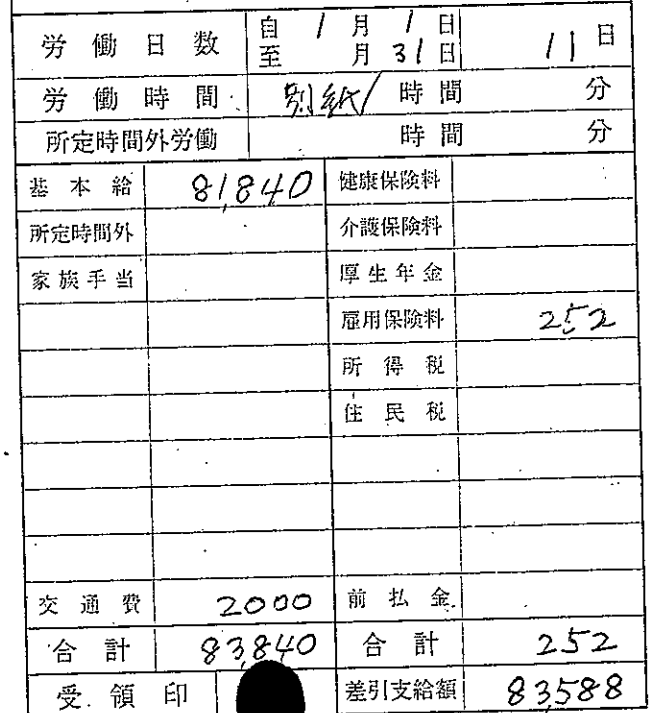 労働日数 自 1月 1日 至 月 31日 11日
労働時間 別紙/ 時間 分
所定時間外労働 時間 分
基本給 81,840 健康保険料
所定時間外 介護保険料
家族手当 厚生年金
雇用保険料 252
所得税
住民税
交通費 2000 前払金
合計 83,840 合計 252
受領印 差引支給額 83,588